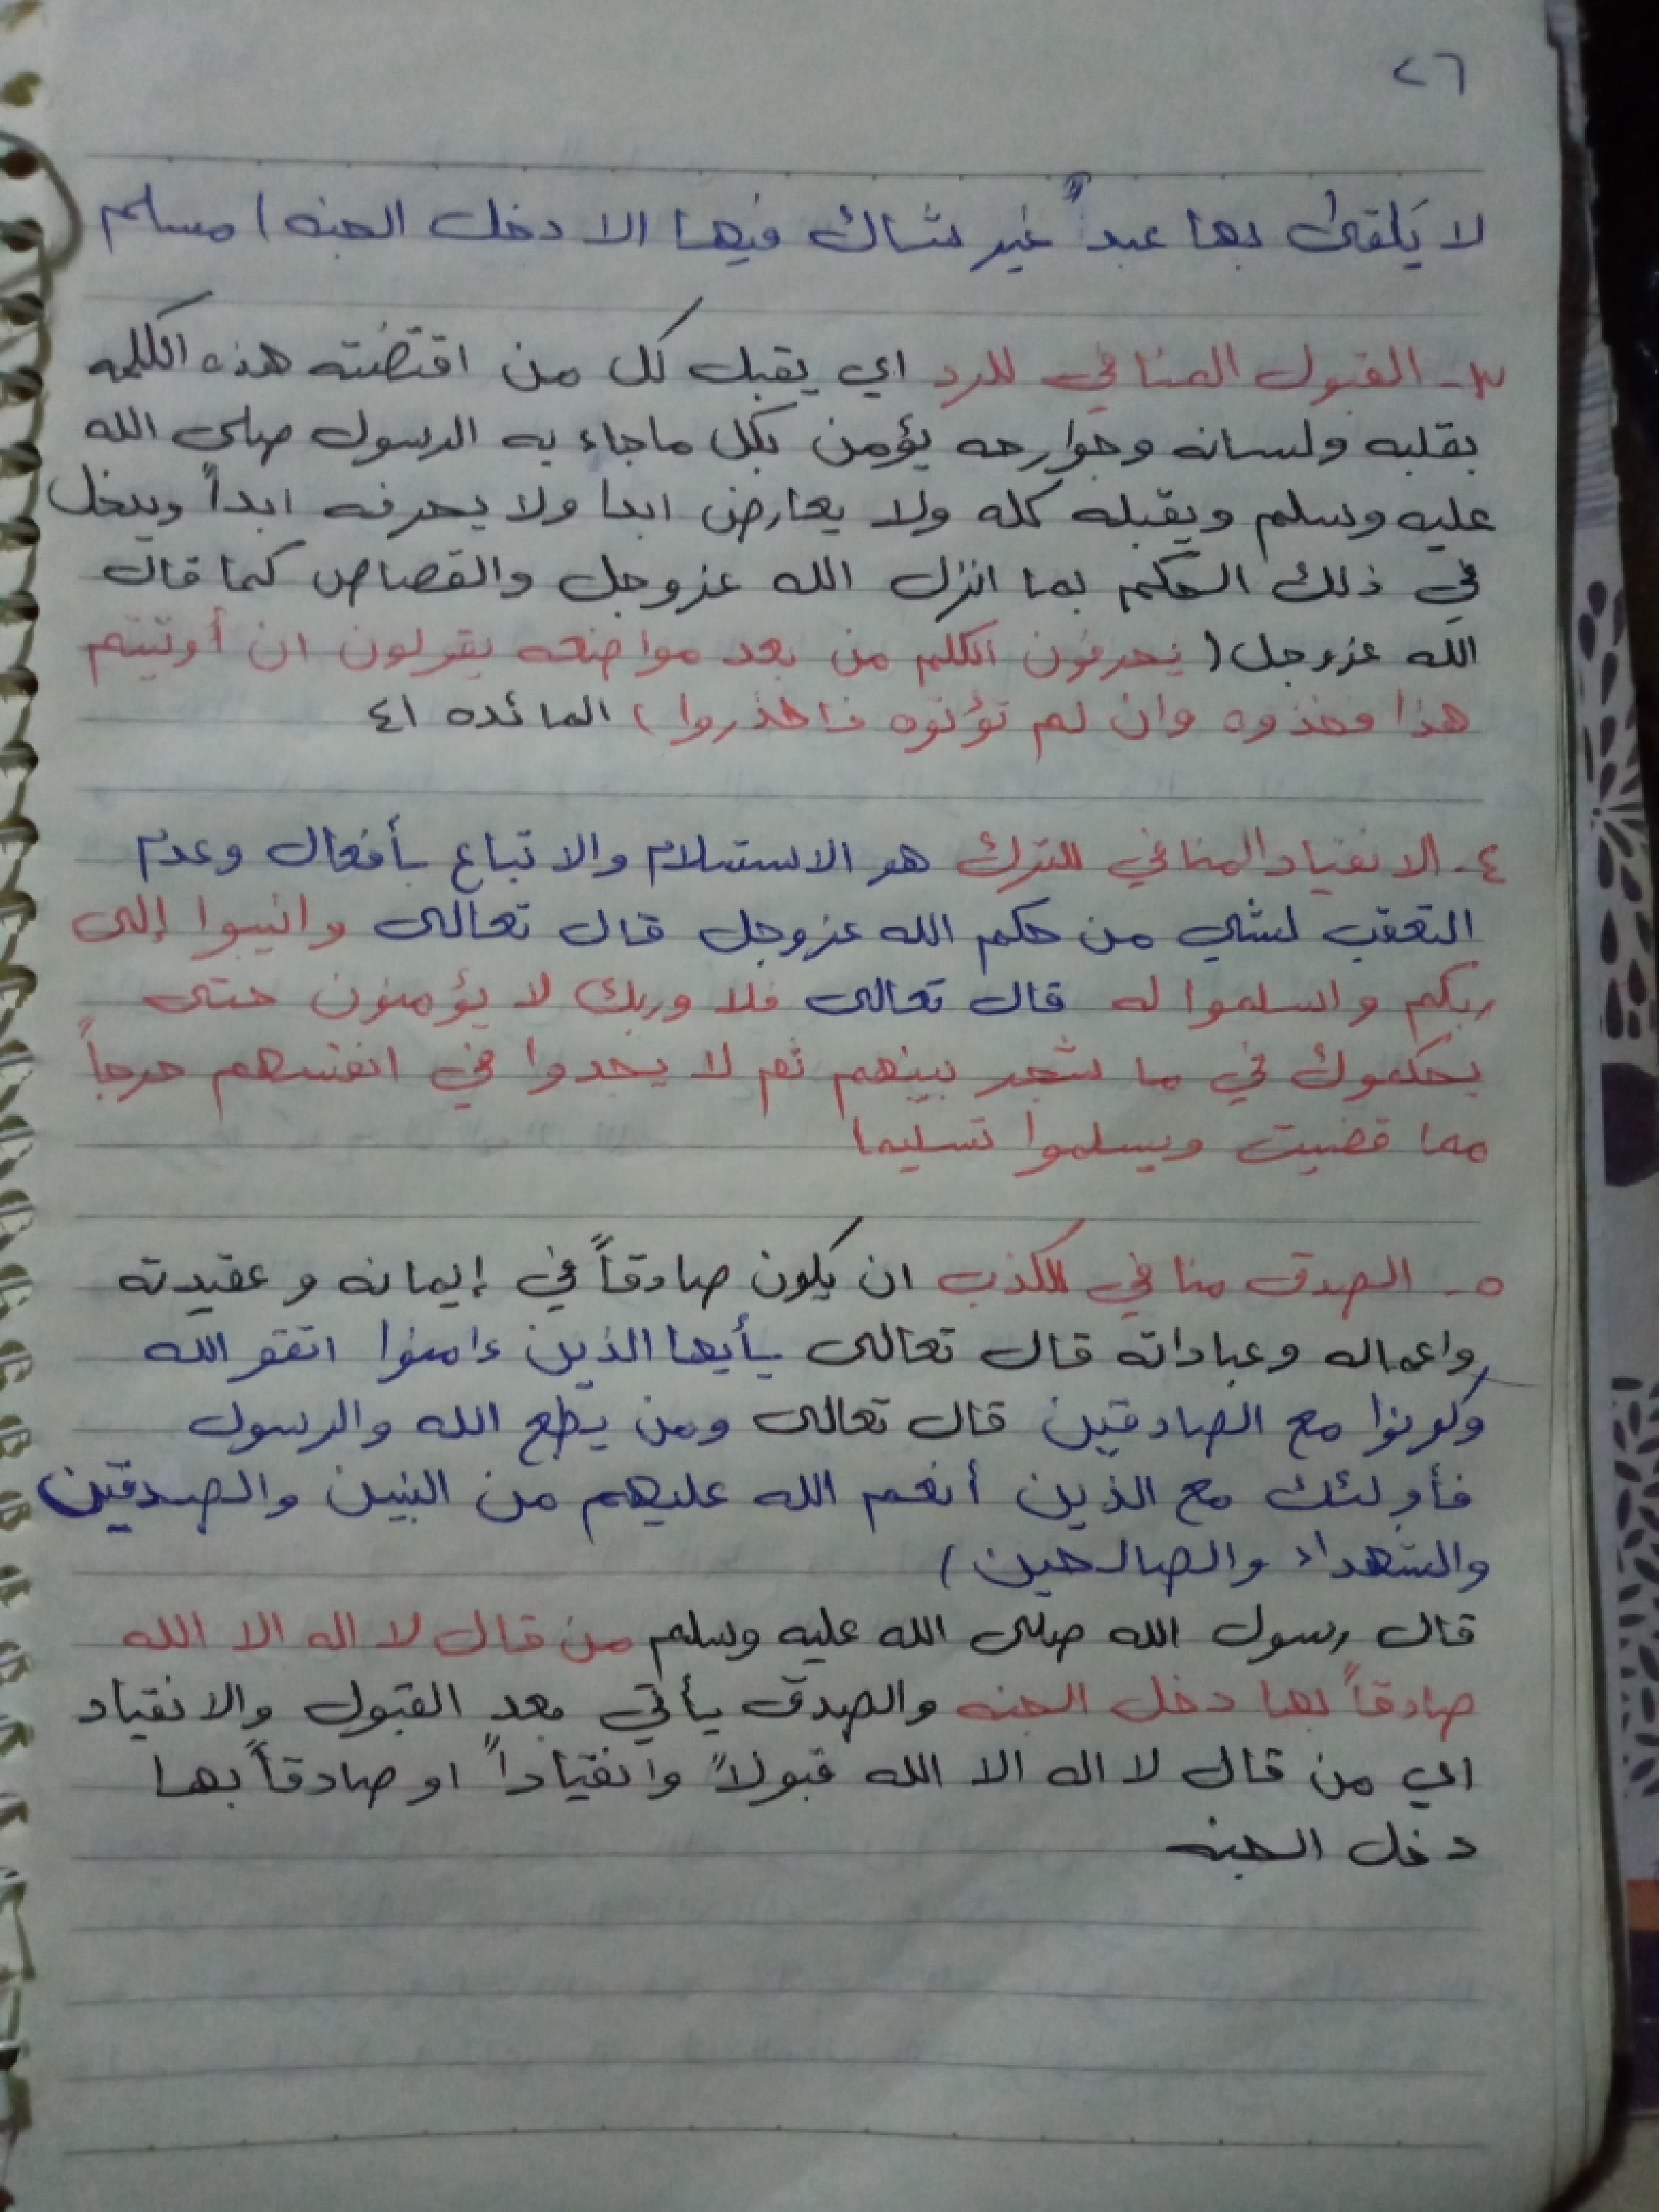 ٢٦
لا يَلقى بها عبدٌ غير شاك فيها الا دخل الجنه) مسلم
٣- القبول المنافي للرد اي يقبل كل من اقتضته هذه الكلمه
بقلبه ولسانه وجوارحه يؤمن بكل ماجاء به الرسول صلى الله
عليه وسلم ويقبله كله ولا يعارض ابدا ولا يحرفه ابداً ويدخل
في ذلك الحكم بما انزل الله عزوجل والقصاص كما قال
الله عزوجل (يحرفون الكلم من بعد مواضعه يقولون ان أوتيتم
هذا فخذوه وان لم تؤتوه فاحذروا) المائده ٤١
٤- الانقياد المنافي للترك هو الاستسلام والاتباع بأفعال وعدم
التعقب لشي من حكم الله عزوجل قال تعالى وانيبوا إلى
ربكم واسلموا له قال تعالى فلا وربك لا يؤمنون حتى
يحكموك في ما شجر بينهم ثم لا يجدوا في انفسهم حرجاً
مما قضيت ويسلموا تسليما
٥- الصدق منافي للكذب ان يكون صادقاً في إيمانه وعقيدته
واعماله وعباداته قال تعالى يأيها الذين ءامنوا اتقو الله
وكونوا مع الصادقين قال تعالى ومن يطع الله والرسول
فأولئك مع الذين أنعم الله عليهم من النبين والصدقين
والشهداء والصالحين)
قال رسول الله صلى الله عليه وسلم من قال لا اله الا الله
صادقاً بها دخل الجنه والصدق يأتي بعد القبول والانقياد
اي من قال لا اله الا الله قبولاً وانقياداً او صادقاً بها
دخل الجنه